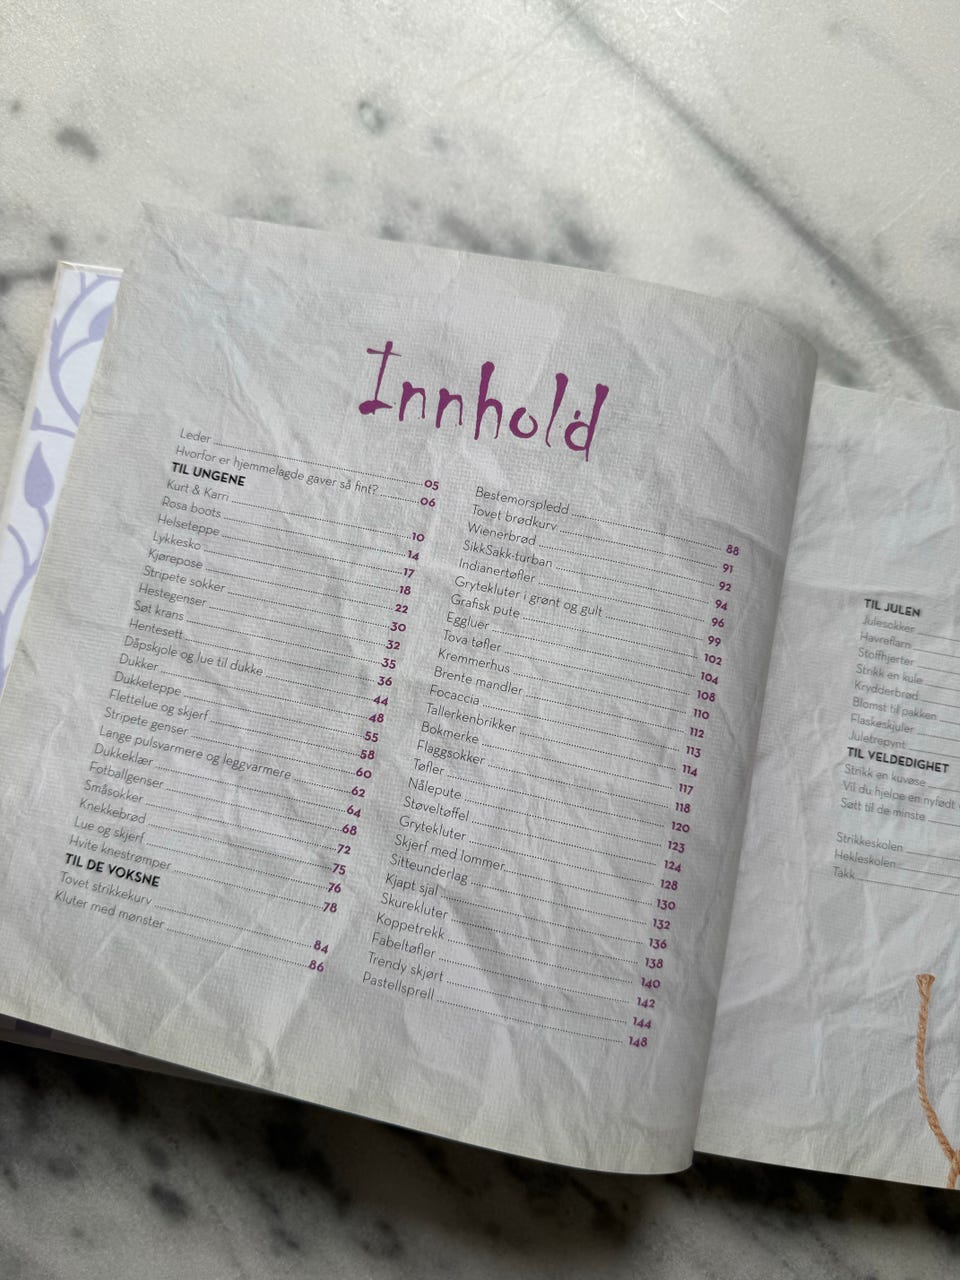 Innhold
Leder 05
Hvorfor er hjemmelagde gaver så fint? 06
TIL UNGENE
Kurt & Karri 10
Rosa boots 14
Helseteppe 17
Lykkesko 18
Kjørepose 22
Stripete sokker 30
Hestegenser 32
Søt krans 35
Hentesett 36
Dåpskjole og lue til dukke 44
Dukker 48
Dukketeppe 55
Flettelue og skjerf 58
Stripete genser 60
Lange pulsvarmere og leggvarmere 62
Dukkeklær 64
Fotballgenser 68
Småsokker 72
Knekkebrød 75
Lue og skjerf 76
Hvite knestrømper 78
TIL DE VOKSNE
Tovet strikkekurv 84
Kluter med mønster 86
Bestemorspledd 88
Tovet brødkurv 91
Wienerbrød 92
SikkSakk-turban 94
Indianertøfler 96
Grytekluter i grønt og gult 99
Grafisk pute 102
Eggluer 104
Tova tøfler 108
Kremmerhus 110
Brente mandler 112
Focaccia 113
Tallerkenbrikker 114
Bokmerke 117
Flaggsokker 118
Tøfler 120
Nålepute 123
Støveltøffel 124
Grytekluter 128
Skjerf med lommer 130
Sitteunderlag 132
Kjapt sjal 136
Skurekluter 138
Koppetrekk 140
Fabeltøfler 142
Trendy skjørt 144
Pastellsprell 148
TIL JULEN
Julesokker
Havreflarn
Stoffhjerter
Strikk en kule
Krydderbrød
Blomst til pakken
Flaskeskjuler
Juletrepynt
TIL VELDEDIGHET
Strikk en kuvøse
Vil du hjelpe en nyfødt
Søtt til de minste
Strikkeskolen
Hekleskolen
Takk